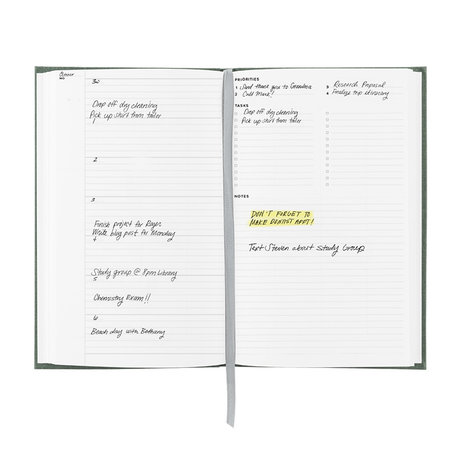 30
Drop off dry cleaning
Pick up shirt from tailor
1
2
3
Finish project for
Write blog post for Monday
4
Study group @ Library
5
Chemistry Exam!!
6
Beach day with Bethany
PRIORITIES
1 Send thank you to Grandma
2 Call Mark!
3 Research Proposal
4 Finalize trip itinerary
TASKS
Drop off dry cleaning
Pick up shirt from tailor
NOTES
DON'T FORGET TO
MAKE DENTIST APPT!
Text Steven about study group